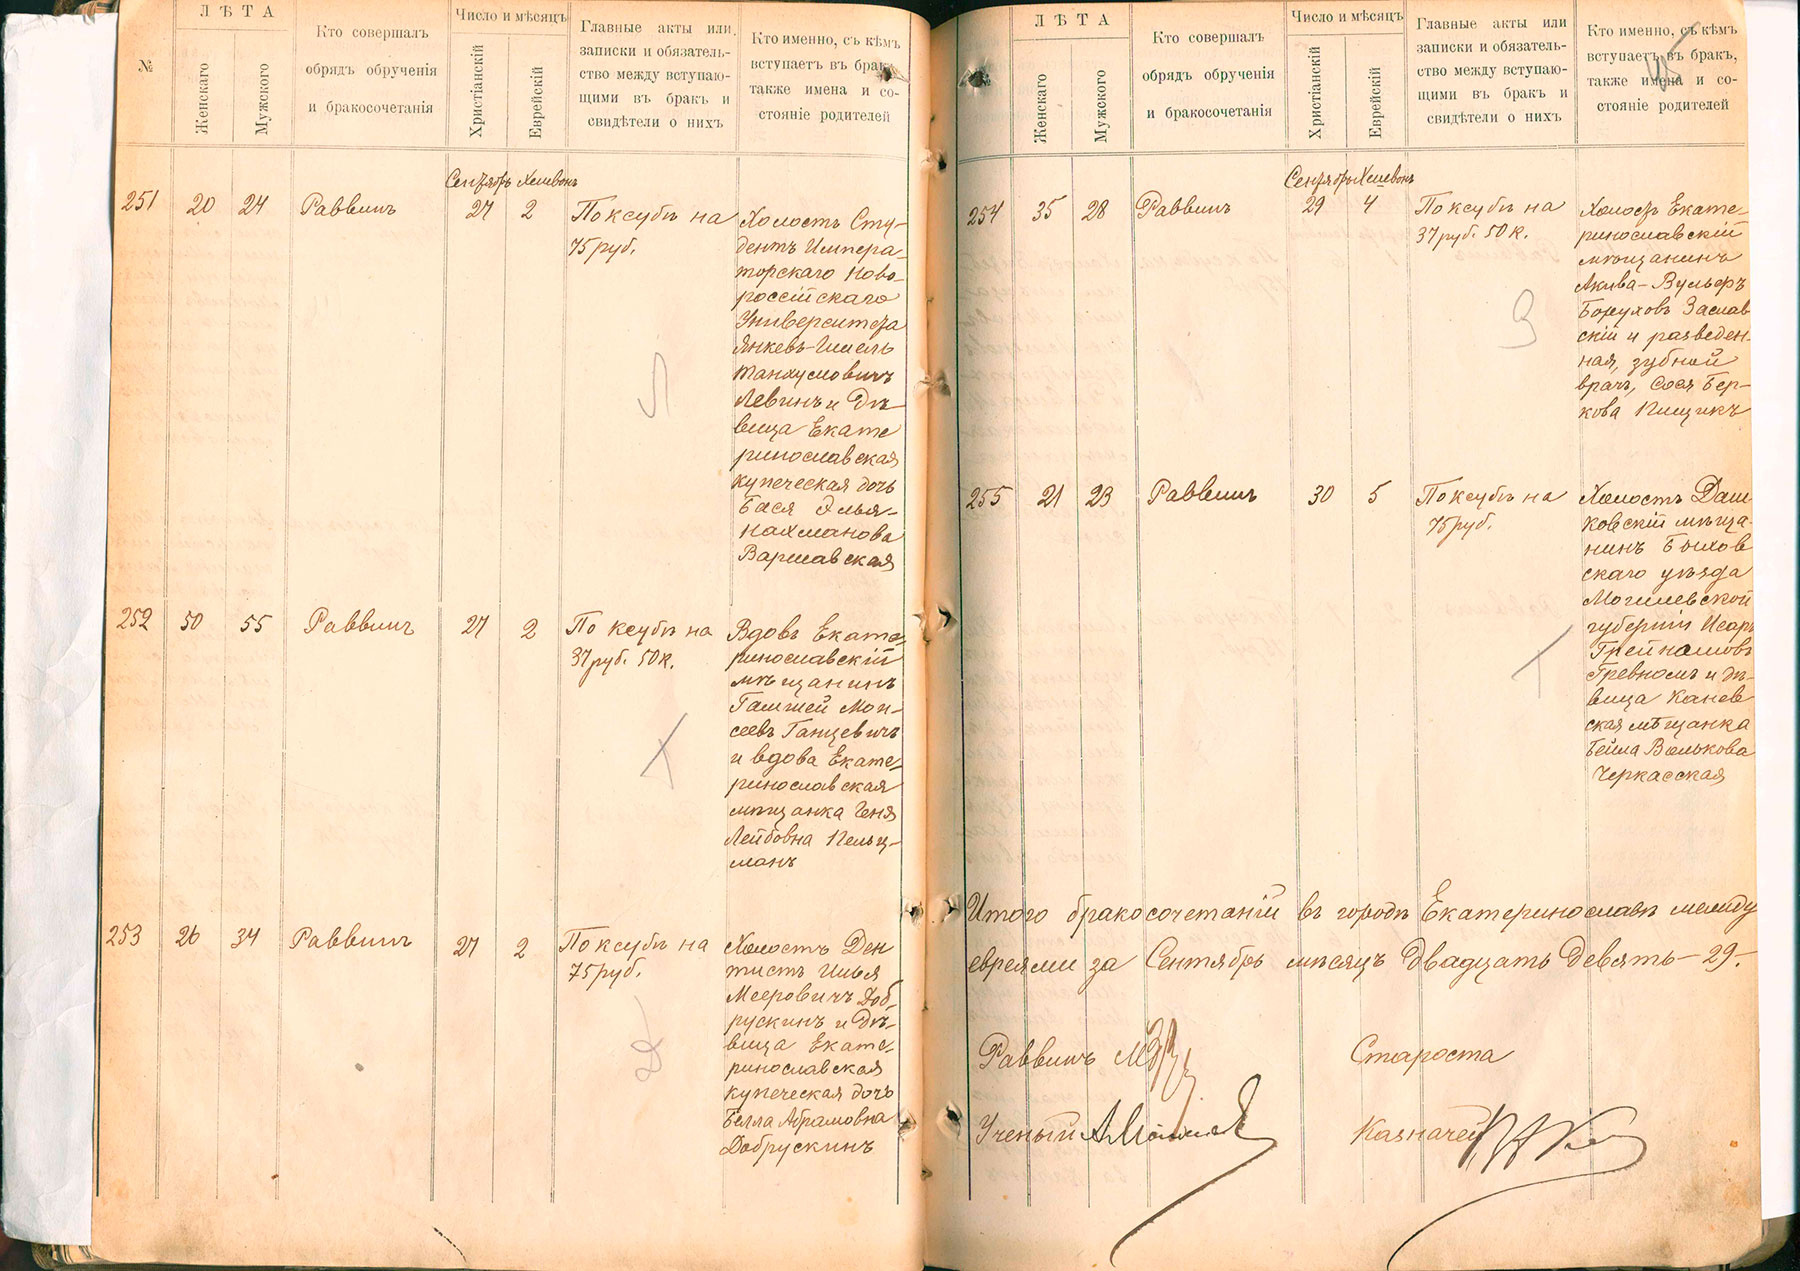 №
ЛѢТА
Женскаго
Мужского
Кто совершалъ
обрядъ обрученія
и бракосочетанія
Число и мѣсяцъ
Христіанскій
Еврейскій
Главные акты или
записки и обязатель-
ство между вступаю-
щими въ бракъ и
свидѣтели о нихъ
Кто именно, съ кѣмъ
вступаетъ въ бракъ
также имена и со-
стояніе родителей
Сентябрь Хешвонъ
251 20 24 Раввинъ 27 2
По ксубѣ на
75 руб.
Холостъ Сту-
дентъ Импера-
торскаго Ново-
россійскаго
Университета
Янкевъ-Шмель
Танхумовичъ
Левинъ и Дѣ-
вица Екате
ринославская
купеческая дочь
Бася Элья-
Нахманова
Варшавская
Л
252 50 55 Раввинъ 27 2
По ксубѣ на
37 руб. 50 к.
Вдовъ Екате-
ринославскій
мѣщанинъ
Гамшей Мои-
сеевъ Ганцевичъ
и вдова Екате-
ринославская
мѣщанка Геня
Лейбовна Кельц-
манъ
253 26 34 Раввинъ 27 2
По ксубѣ на
75 руб.
Холостъ Ден
тистъ Илья
Мееровичъ Доб-
рускинъ и Дѣ-
вица Екате-
ринославская
купеческая дочь
Белла Абрамовна
Добрускинъ
ЛѢТА
Женскаго
Мужского
Кто совершалъ
обрядъ обрученія
и бракосочетанія
Число и мѣсяцъ
Христіанскій
Еврейскій
Главные акты или
записки и обязатель-
ство между вступаю-
щими въ бракъ и
свидѣтели о нихъ
Кто именно, съ кѣмъ
вступаетъ въ бракъ,
также имена и со-
стояніе родителей
Сентябрь Хешвонъ
254 35 28 Раввинъ 29 4
По ксубѣ на
37 руб. 50 к.
З
Холостъ Екате-
ринославскій
мѣщанинъ
Акива-Вульфъ
Боруховъ Заслав
скій и разведен-
ная, зубной
врачъ, Сося Бер-
кова Пищикъ
255 21 23 Раввинъ 30 5
По ксубѣ на
75 руб.
Холостъ Даш
ковскій мѣща-
нинъ Быхов
скаго уѣзда
Могилевской
губерніи Исаръ
Грейномовъ
Гревномъ и дѣ-
вица Канев
ская мѣщанка
Бейла Волькова
Черкасская
Итого бракосочетаній въ городѣ Екатеринославѣ между
евреями за Сентябрь мѣсяцъ Двадцать Девять - 29.-
Раввинъ
Староста
Ученый
Казначей